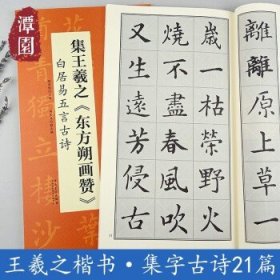 潭園
集王羲之《东方朔画赞》
白居易五言古诗
離離原上草一
歲一枯榮野火
燒不盡春風吹
又生遠芳侵古
王羲之楷书·集字古诗21篇